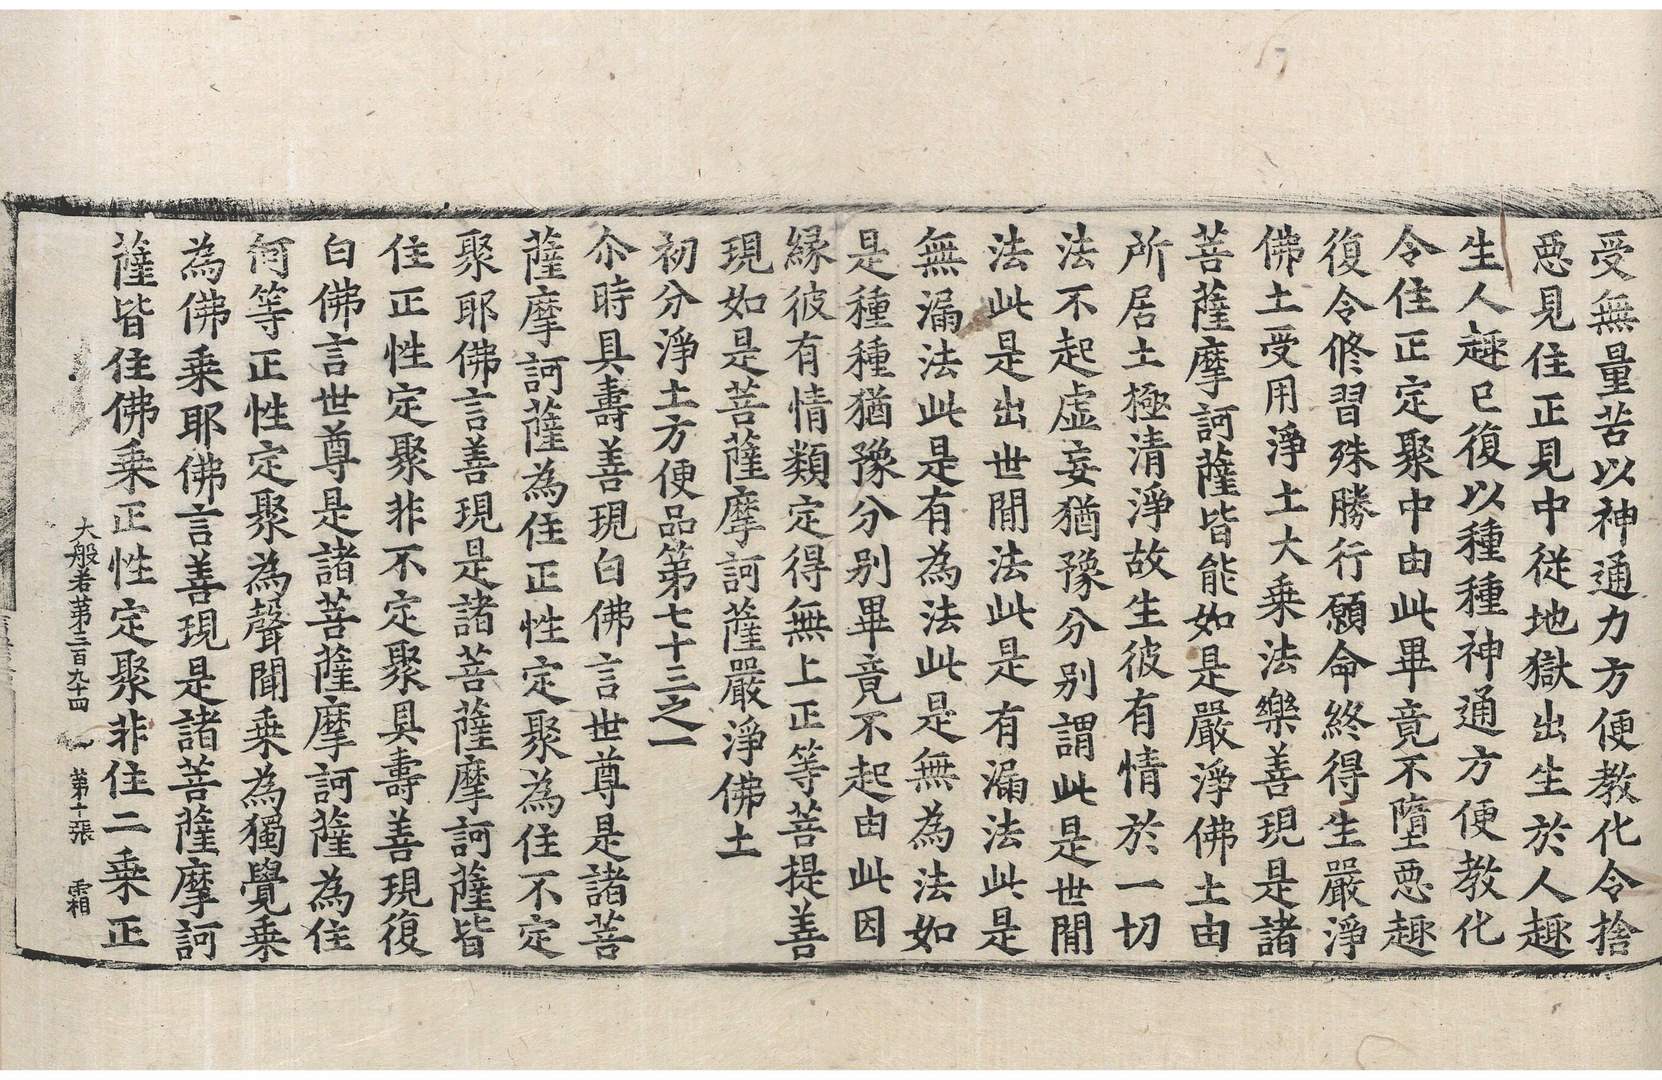 受無量苦以神通力方便教化令捨
惡見住正見中從地獄出生於人趣
生人趣已復以種種神通方便教化
令住正定聚中由此畢竟不墮惡趣
復令修習殊勝行願命終得生嚴淨
佛土受用淨土大乘法樂善現是諸
菩薩摩訶薩皆能如是嚴淨佛土由
所居土極清淨故生彼有情於一切
法不起虛妄猶豫分別謂此是世閒
法此是出世閒法此是有漏法此是
無漏法此是有為法此是無為法如
是種種猶豫分別畢竟不起由此因
緣彼有情類定得無上正等菩提善
現如是菩薩摩訶薩嚴淨佛土
初分淨土方便品第七十三之一
尒時具壽善現白佛言世尊是諸菩
薩摩訶薩為住正性定聚為住不定
聚耶佛言善現是諸菩薩摩訶薩皆
住正性定聚非不定聚具壽善現復
白佛言世尊是諸菩薩摩訶薩為住
何等正性定聚為聲聞乘為獨覺乘
為佛乘耶佛言善現是諸菩薩摩訶
薩皆住佛乘正性定聚非住二乘正
大般若第三百九十四 第十張 霜